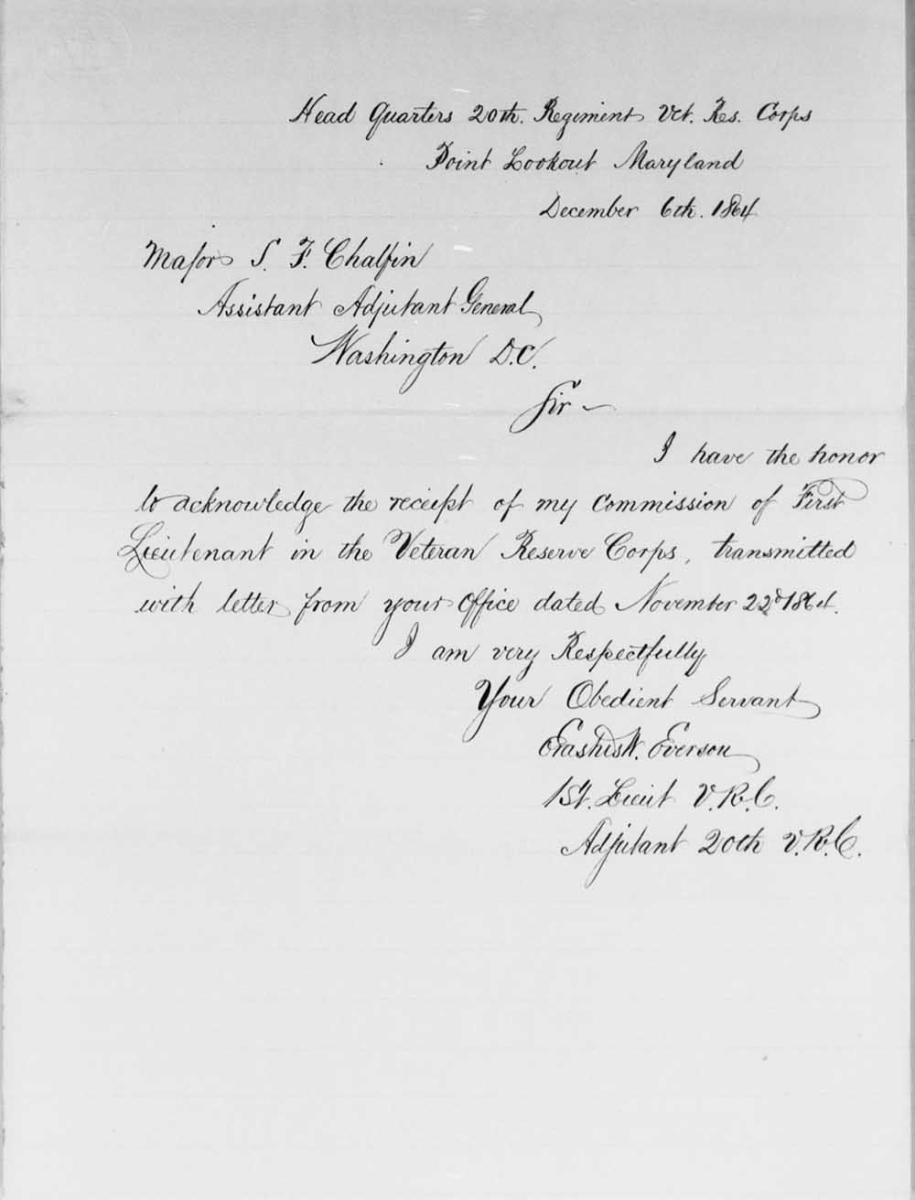 Head Quarters 20th. Regiment Vet. Res. Corps
Point Lookout Maryland
December 6th. 1864
Major S. F. Chalfin
Assistant Adjutant General
Washington D.C.
Sir —
I have the honor
to acknowledge the receipt of my Commission of First
Lieutenant in the Veteran Reserve Corps, transmitted
with letter from your Office dated November 22d 1864.
I am very Respectfully
Your Obedient Servant
Erastus W. Everson
1st. Lieut V.R.C.
Adjutant 20th V.R.C.